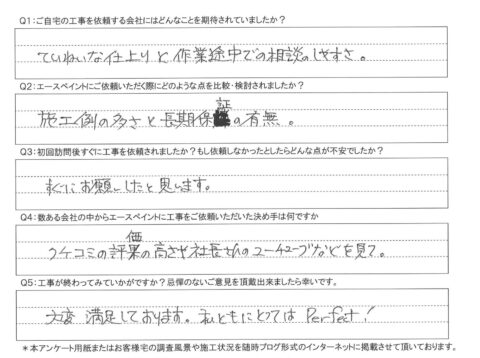 Q1:ご自宅の工事を依頼する会社にはどんなことを期待されていましたか?
ていねいな仕上りと作業途中での相談のしやすさ。
Q2:エースペイントにご依頼いただく際にどのような点を比較・検討されましたか?
施工例の多さと長期保証の有無。
Q3:初回訪問後すぐに工事を依頼されましたか?もし依頼しなかったとしたらどんな点が不安でしたか?
すぐにお願いしたと思います。
Q4:数ある会社の中からエースペイントに工事をご依頼いただいた決め手は何ですか
クチコミの評価の高さや社長さんのユーチューブなどを見て。
Q5:工事が終わってみていかがですか?忌憚のないご意見を頂戴出来ましたら幸いです。
大変満足しております。私どもにとっては Perfect!
*本アンケート用紙またはお客様宅の調査風景や施工状況を随時ブログ形式のインターネットに掲載させて頂いております。